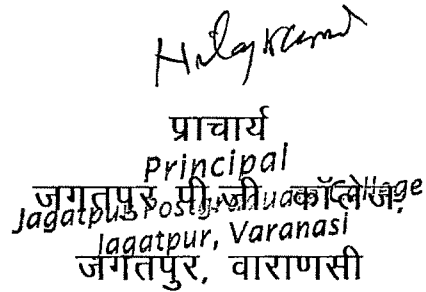 प्राचार्य
Principal
जगतपुर पी.जी. कॉलेज,
Jagatpur Postgraduate College
Jagatpur, Varanasi
जगतपुर, वाराणसी